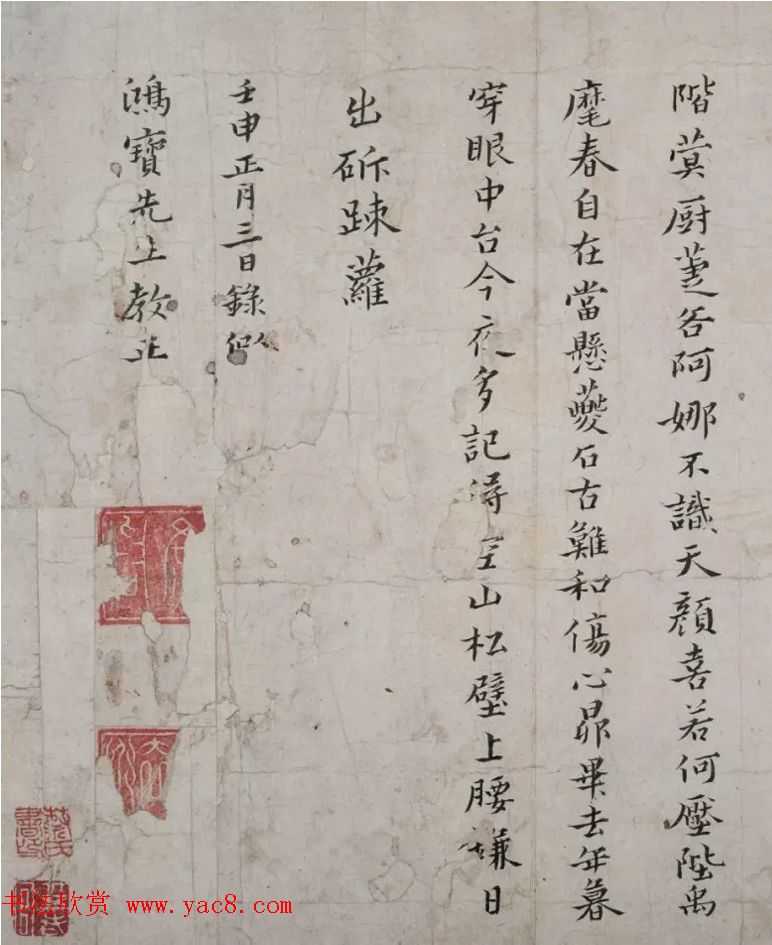 階蓂厨萐各阿娜不識天顔喜若何壓陛禹
麾春自在當懸虁石古難和傷心昴畢去年暮
穿眼中台今夜多記得空山松壁上腰鎌日
出斫踈蘿
壬申正月三日錄似
鴻寶先生教正
书法欣赏 www.yac8.com